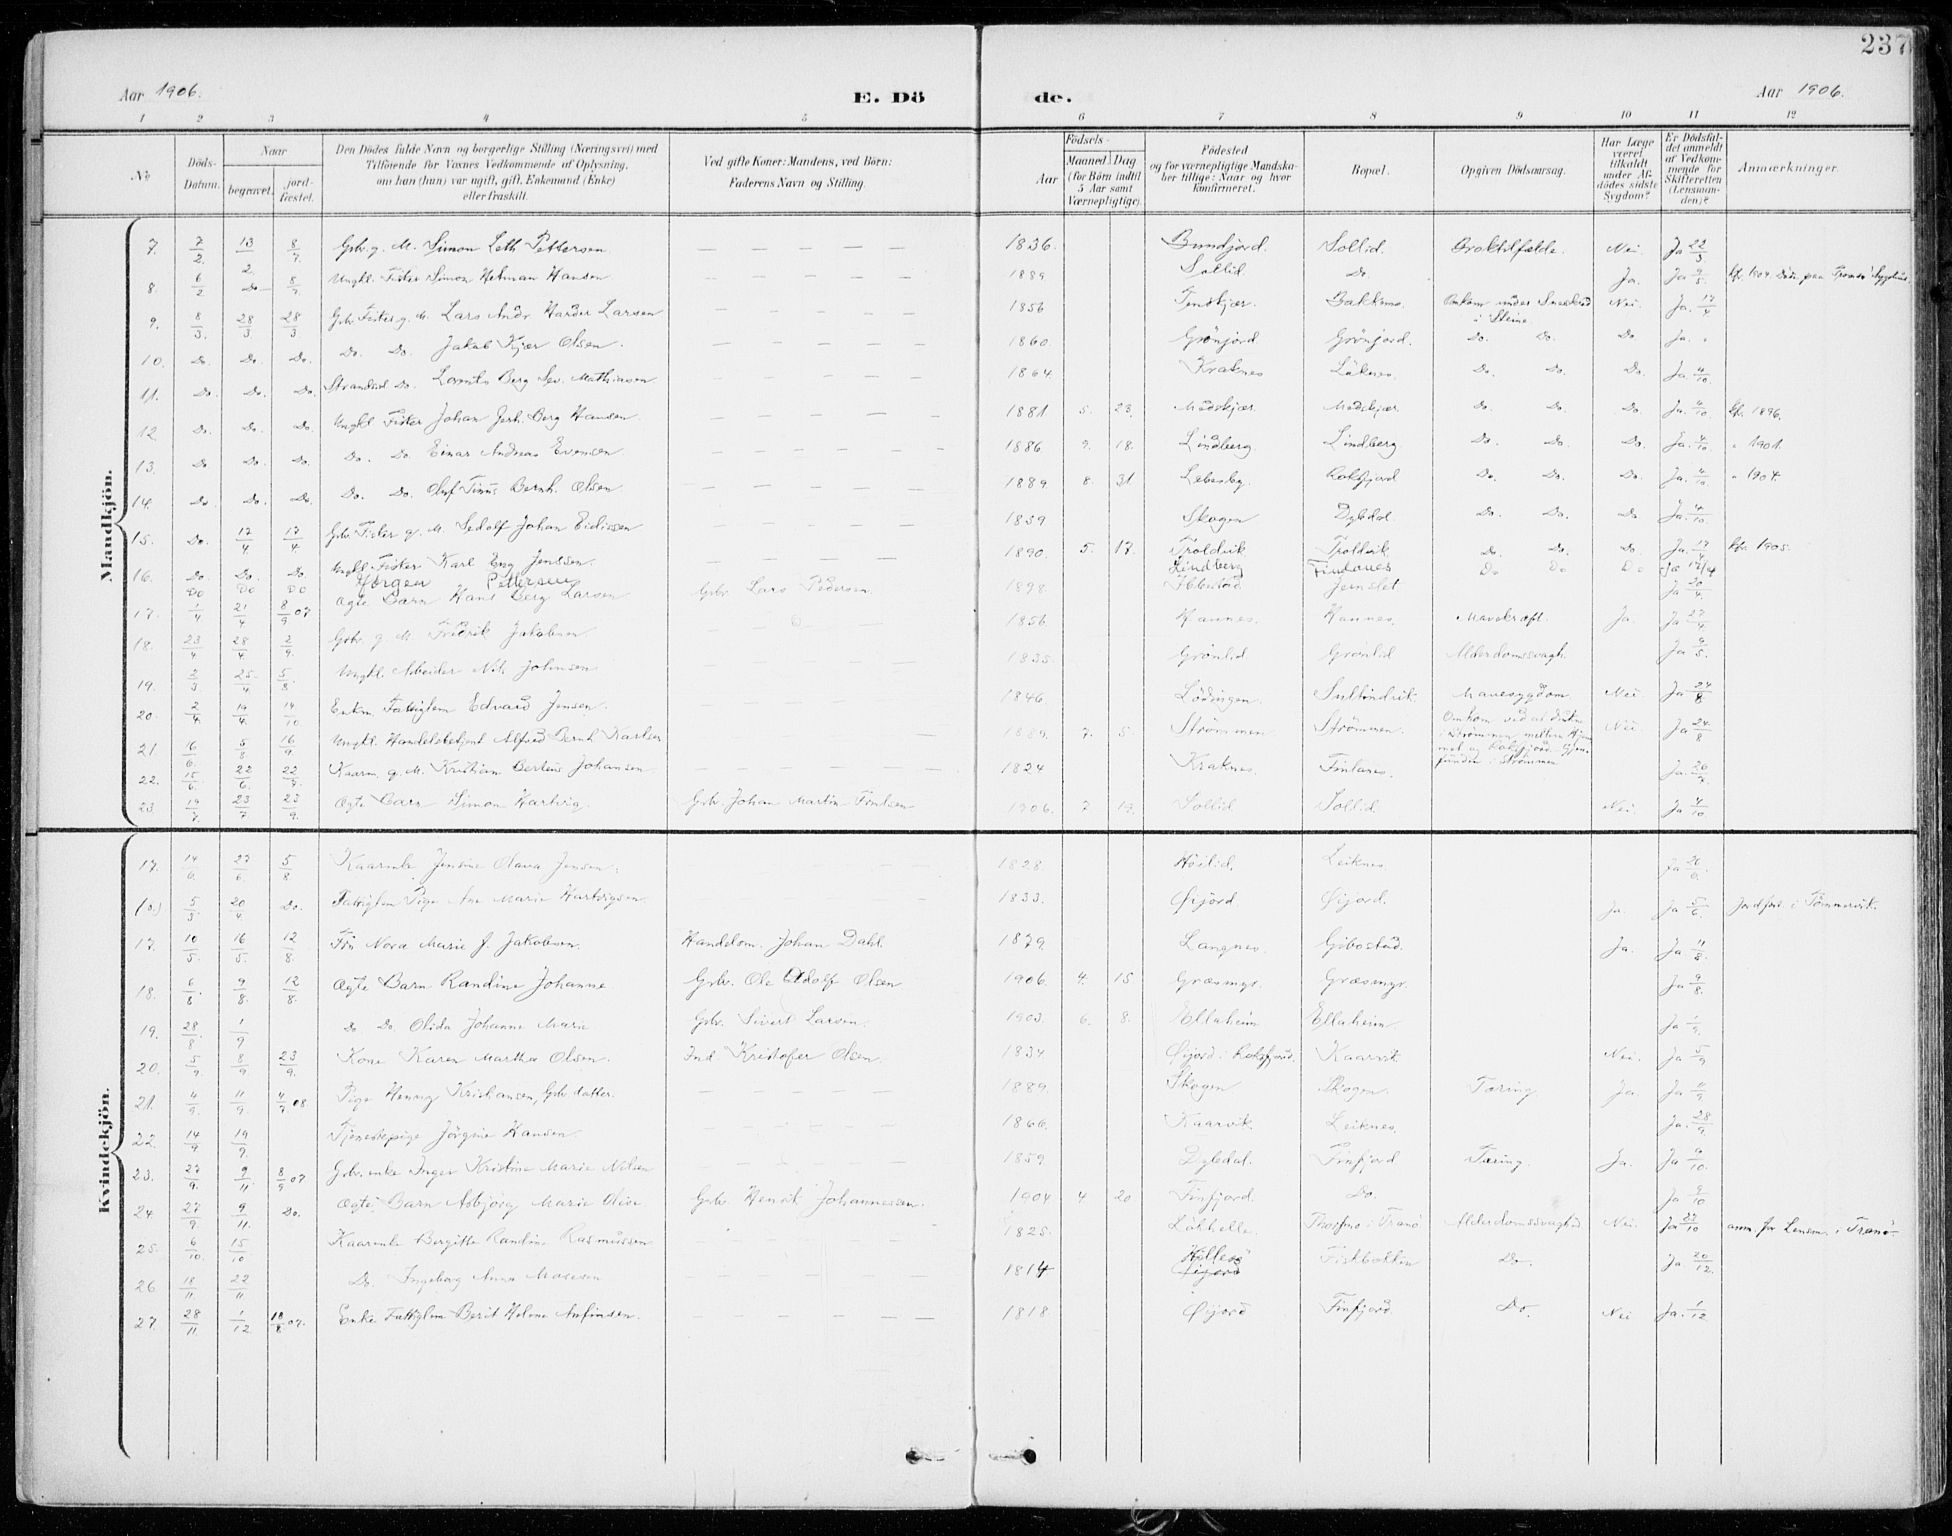 237
Aar 1906. E. Dö de. Aar 1906.
1 2 3 4 5 6 7 8 9 10 11 12
No Döds-Datum. Naar begravet. jord-fæstet. Den Dödes fulde Navn og borgerlige Stilling (Næringsvei) med Tilföiende for Voxnes Vedkommende af Oplysning, om han (hun) var ugift, gift, Enkemand (Enke) eller fraskilt. Ved gifte Koner: Mandens, ved Börn: Faderens Navn og Stilling. Födsels- Aar Maaned. Dag (for Börn indtil 5 Aar samt Værnepligtige). Födested og for værnepligtige Mandskaber tillige: Naar og hvor konfirmeret. Bopæl. Opgiven Dödsaarsag. Har Læge været tilkaldt under Afdödes sidste Sygdom? Er Dödsfaldet anmeldt af Vedkommende for Skifteretten (Lensmanden)? Anmærkninger.
Mandkjön.
7. 7/2. 13/2. 8/7. Gbr. g. M. Simon Leth Pettersen. — — — — — 1836. Bundjord. Sollid. Nei. Ja 22/3
8. 6/2 Do — 8/7 Ungkl. Fisker Simon Hetman Hansen — — — — — 1889. Sollid. Do. Ja. Ja 9/5. kf. 1904. Döde paa Tromsö Sygehus.
9. 8/3. 28/3. 28/3 Gbr. Fisker g. M. Lars Andr. Harder Larsen — — — — — 1856 Tennskjær. Bakkemo. Omkom under Sneskred i Steine. Nei. Ja. 17/4
10. Do. Do. Do. Do. Do. Jakob Kjær Olsen. — — — — — 1860. Grönjord Grönjord. Do. Do. Do Ja. "
11. Do. Do. Do. Strandsid. Do. Lorents Berg Sev. Mathiasen — — — — — 1864. Kraknes Do. Do. Do. Ja 4/10.
12 Do. Do. Do. Ungkl. Fisker Johan Jerh. Berg Hansen. — — — — — 1881 5. 23. Mådskjær. Mådskjær. Do. Do. Do. Ja. 4/10. kf. 1896.
13. Do Do. Do. Do. Do. Einar Andreas Evensen — — — — — 1886 9. 18. Lindberg. Lindberg. Do. Do. Do. Ja. 4/10. " 1901.
14. Do Do. Do. Do. Do. Oluf Tinus Bernh. Olsen. — — — — — 1889. 8. 31. Lebesby. Rotsfjord Do. Do. Do. Ja 4/10. " 1904.
15. Do. 17/4. 17/4. Gbr. Fisker g. M. Sedolf Johan Eidissen — — — — — 1859 Skogen Dybdal. Do. Do. Do Ja. 4/10.
16. Do. Do. Do. Ungkl. Fisker Karl Eng. Jenssen. — — — — — 1890. 5. 17. Troldvik Troldvik Do. Do. Do. Ja. 17/4 kf. 1905.
Do Do Do Jörgen Pettersen Lindberg Finlanes Do Do Do Ja 17/4
17. 1/4 21/4 8/9 07 Ægte Barn Hans Berg Larsen Gbr. Lars Pedersen. 1898. Ibbestad. Jernslet Ja 20/4.
18. 23/4 28/4. 2/9. Gbr. g. M. Fredrik Jakobsen. — — — — — 1856. Hannes. Hannes. Mavekræft. Ja. Ja 27/4
19. 2/3 25/4 5/8. Ungkl. Arbeider Nils Johnsen — — — — — 1835. Grönlid Grönlid Alderdomssvagh. Ja 9/5.
20. 2/4. 19/4. 14/10 Enkm. Fattiglem Edvard Jensen. — — — — — 1846. Lödingen. Sultindvik. Mavesygdom. Nei Ja 24/8.
21. 16/6. 5/8 16/9. Ungkl. Handelsbetjent Alfred Bernh. Karlsen — — — — — 1889. 7. 5. Strömmen. Strömmen. Nei. Ja 24/8
22. 15/6. 22/6. 22/9. Kaarm. g. M. Kristian Berteus Johansen. — — — — — 1824 Kraknes. Finlanes. Ja. 20/7.
23. 19/7. 23/7 23/9. Ægte Barn Simon Hartvig. Gbr. Johan Martin 1906 7 19. Sollid. Sollid. Nei. Ja 4/10.
Kvindekjön.
17. 14/6. 27/6. 5/8. Kaarenke Jensine Olava Jensen. — — — — — 1828. Höilid. Leiknes. Ja 20/6.
5/3. 20/4. Do. Fattiglem Pige Ane Marie Hartvigsen. — — — — — 1833. Øijord. Øijord. Ja. Ja 5/6. jordfæs. i Tömmervik.
17. 10/5. 16/5. 12/8. Fru Nora Marie J. Jakobsen. Handelsm. Johan Dahl. 1879. Langnes. Gibostad. Ja. Ja 11/8.
18. 6/8 9/8. 12/8. Ægte Barn Randine Johanne Gbr. Ole Adolf Olsen 1906. 4. 15 Græsmyr. Græsmyr. Ja 9/8.
19. 28/8 1/9 Do Do. Olida Johanne Marie Gbr. Sivert Larsen. 1903. 6. 8. Ellaheim Ellaheim. Ja 1/9.
20. 5/9 8/9 23/9. Kone Karen Martha Olsen. Ind. Kristofer Olsen. 1834. Øijord i Rotsfjord. Kaarvik. Nei. Ja 5/9
21. 4/9. 11/9. 4/7 08 Pige Henny Kristiansen, Gbr. datter. — — — — — 1889. Skogen Skogen. Tæring. Ja. Ja 11/9
22. 14/9 19/9. Tjenestepige Jörgine Hansen. — — — — — 1866. Kaarvik. Leiknes. Ja. 28/9.
23. 27/9. 9/11. 8/9 07 Gbr. enke Inger Kristine Marie Nilsen — — — — — 1859. Dybdal. Finfjord Tæring. Ja. Ja 9/10.
24. 27/9. 9/11. Do. Ægte Barn Asbjörg Marie Olise Gbr. Henrik Johannessen. 1904 4 20 Finfjord. Do. Ja 9/10
25. 6/10. 15/10 Kaarenke Bergitte Randine Rasmussen — — — — — 1825. Lökhelle i Tranö Alderdomssvaghed. Nei. Ja 27/10 anm. for Lensm. i Tranö
26 18/11. 22/11 Do. Ingeborg Anna Mosesen — — — — — 1814 Hellesö Øijord Fiskbotten Do. Ja 20/12.
27. 28/11 1/12 18/8 07. Enke Fattiglem Berit Helene Anfinsen. — — — — — 1818 Øijord Finfjord Do. Nei Ja. 1/12